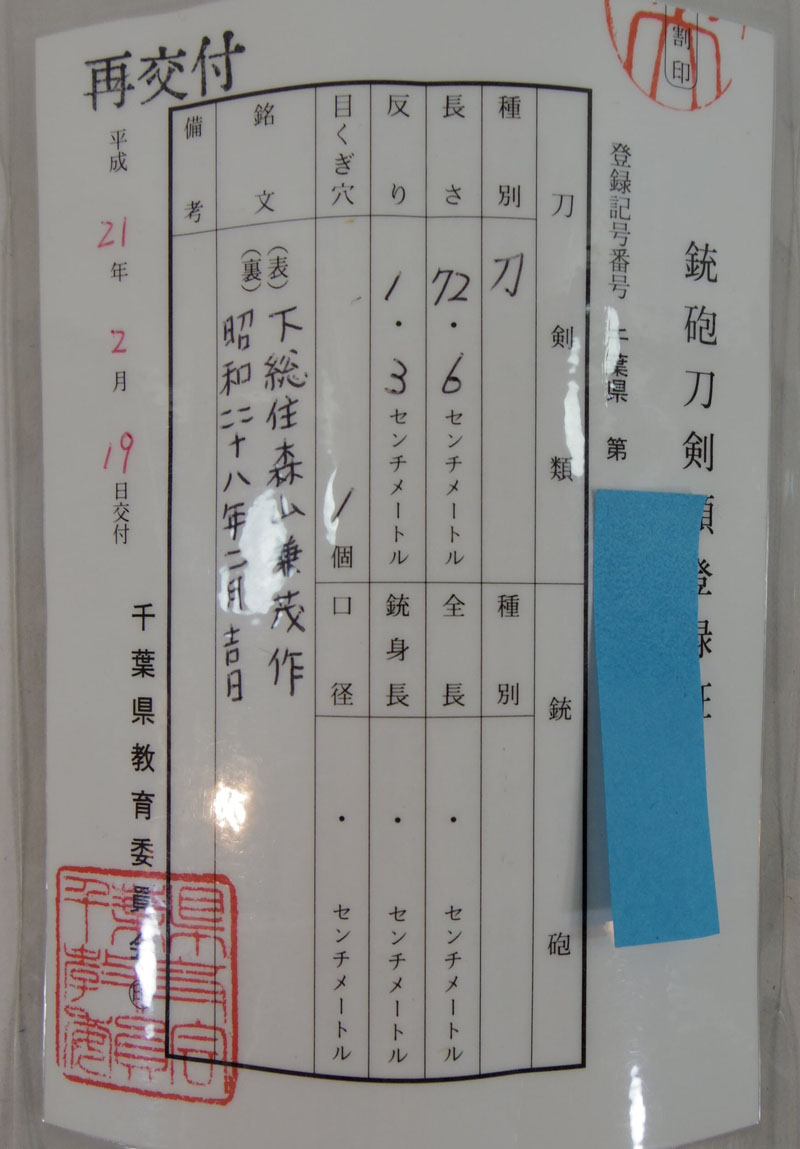 割印
銃砲刀剣類登録証
登録記号番号 千葉県 第
刀剣類
銃砲
種別
刀
種別
長さ
72・6センチメートル
全長
・センチメートル
反り
1・3センチメートル
銃身長
・センチメートル
目くぎ穴
1個
口径
・センチメートル
銘文
(表)下総住森山兼茂作
(裏)昭和二十八年二月吉日
備考
再交付
平成21年2月19日交付
千葉県教育委員会㊞